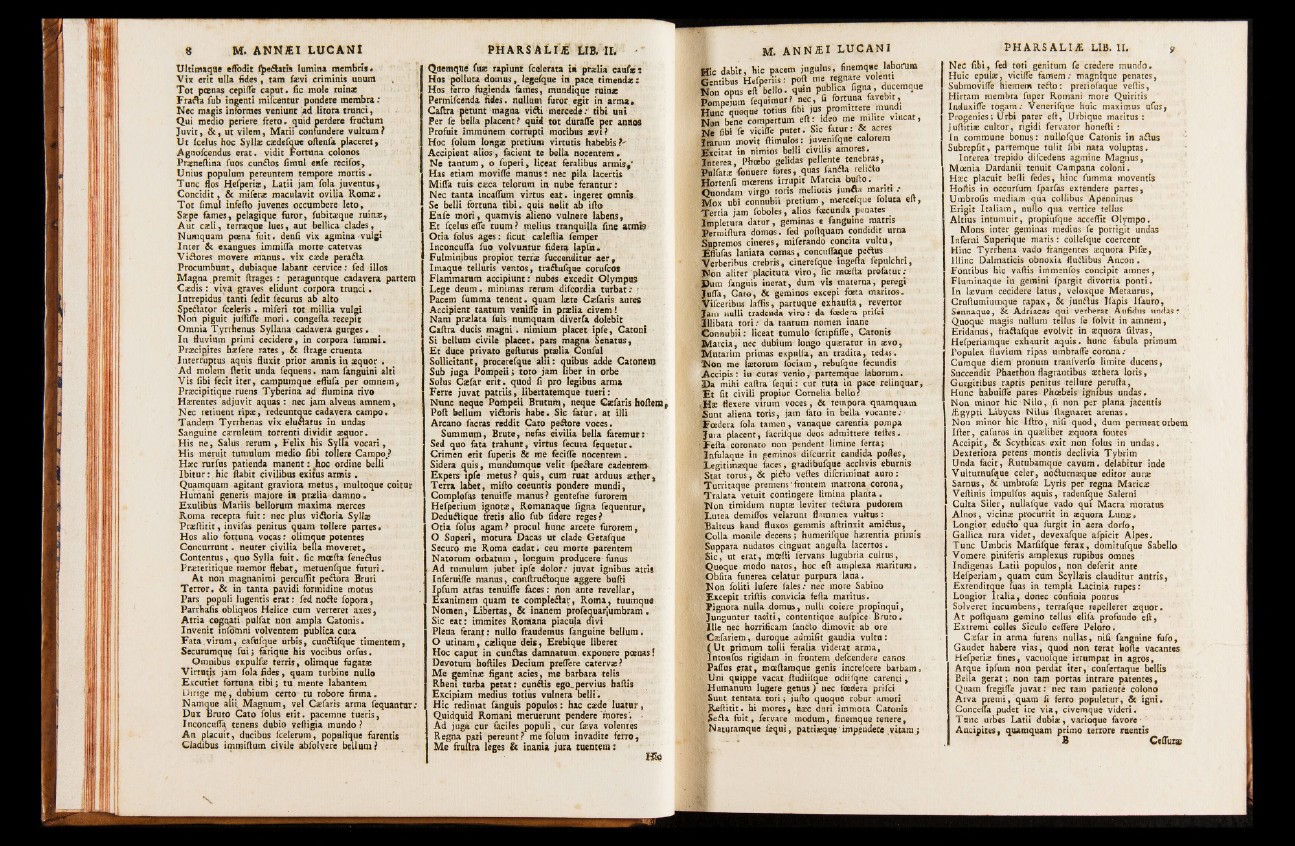 8 M. ANNÆI LUCANI
Ultimaque effodit ſpectatis lumina membris.
Vix erit ulla fides, tam ſævi criminis unum
Tot pœnas cepiſſe caput. ſic mole ruinæ
Fracta ſub ingenti miſcentur pondere membra:
Nec magis informes veniunt ad litora trunci,
Qui medio periere freto. quid perdere fructum
Juvit, &, ut vilem, Marii confundere vulcum?
Ut ſcelus hoc Syllæ cædeſque oſtenſa placeret,
Agnoſcendus erat. vidit Fortuna colonos
Præneſtina ſuos cunctos ſimul enſe reciſos,
Unius populum pereuntem tempore mortis.
Tunc flos Heſperiæ, Latii jam ſola juventus,
Concidit, & miſeræ maculavit ovilia Romæ.
Tot ſimul infeſto juvenes occumbere leto,
Sæpe fames, pelagique furor, ſubitæque ruinæ,
Aut cæli, terræque lues, aut bellica clades,
Numquam pœna fuit. denſi vix agmina vulgi
Inter & exangues immiſſa morte catervas
Victores movere manus. vix cæde peracta
Procumbunt, dubiaque labant cervice: ſed illos
Magna premit ſtrages: peraguntque cadavera partem
Cædis: viva graves elidunt corpora trunci.
Intrepidus tanti ſedit ſecurus ab alto
Spectator ſceleris. miſeri tot millia vulgi
Non piguit juſſiſſe mori. congeſta recepit
Omnia Tyrrhenus Syllana cadavera gurges.
In fluvium primi cecidere, in corpora ſummi.
Præcipites hæſere rates, & ſtrage cruenta
Interruptus aquis fluxit prior amnis in æquor.
Ad molem ſtetit unda ſequens. nam ſanguini alti
Vis ſibi fecit iter, campumque effuſa per omnem,
Præcipitique ruens Tyberina ad flumina rivo
Hærentes adjuvit aquas: nec jam alveus amnem,
Nec retinent ripæ, redeuntque cadavera campo.
Tandem Tyrrhenas vix eluctatus in undas
Sanguine cæruleum torrenti dividit æquor.
His ne, Salus rerum, Felix his Sylla vocari,
His meruit tumulum medio ſibi tollere Campo?
Hæc rurſus patienda manent: hoc ordine belli
Ibitur: hic ſtabit civilibus exitus armis.
Quamquam agitant graviora metus, multoque coitur
Humani generis majore in prælia damno.
Exulibus Mariis bellorum maxima merces
Roma recepta fuit: nec plus victoria Syllæ
Præſtitit, inviſas penitus quam tollere partes.
Hos alio fortuna vocas: olimque potentes
Concurrunt. neuter civilia bella moveret,
Contentus, quo Sylla fuit. ſic mœſta ſenectus
Præteritique memor flebat, metuenſque futuri.
At non magnanimi percuſſit pectora Bruti
Terror, & in tanta pavidi formidine motus
Pars populi lugentis erat: ſed nocte ſopora,
Parrhaſis obliquos Helice cum verteret axes,
Atria cognati pulſat non ampla Catonis.
Invenit inſomni volventem publica cura
Fata virum, caſuſque urbis, cunctiſque timentem,
Securumque ſui; farique his vocibus orſus.
Omnibus expulſæ terris, olimque fugatæ
Virtutis jam ſola fides, quam turbine nullo
Excutiet fortuna tibi; tu mente labantem
Dirige me, dubium certo tu robore firma.
Namque alii Magnum, vel Cæſaris arma ſequantur:
Dux Bruto Cato ſolus erit. pacemne tueris,
Inconcuſſa tenens dubio veſtigia mundo?
An placuit, ducibus ſcelerum, populique furentis
Cladibus immiſtum civile abſolvere bellum?
PHARSALIÆ LIB. II.
Quemque ſuæ rapiunt ſcelerata in prælia cauſæ:
Hos polluta domus, legeſque in pace timendæ:
Hos ferro fugienda fames, mundique ruinæ
Permiſcenda fides. nullum furor egit in arma.
Caſtra petunt magna victi mercede: tibi uni
Per ſe bella placent? quid tot duraſſe per annos
Profuit immunem corrupti moribus ævi?
Hoc ſolum longæ pretium virtutis habebis?
Accipient alios, facient te bella nocentem.
Ne tantum, o ſuperi, liceat feralibus armis,
Has etiam moviſſe manus: nec pila lacertis
Miſſa tuis cæca telorum in nube ferantur:
Nec tanta incaſſum virtus eat. ingeret omnis
Se belli fortuna tibi. quis nolit ab iſto
Enſe mori, quamvis alieno vulnere labens,
Et ſcelus eſſe tuum? melius tranquilla ſine armis
Otia ſolus ages: ſicut cæleſtia ſemper
Inconcuſſa ſuo volvuntur ſidera lapſu.
Fulminibus propior terræ ſuccenditur aer,
Imaque telluris ventos, tractuſque coruſcos
Flammarum accipiunt: nubes excedit Olympus
Lege deum. minimas rerum diſcordia turbat:
Pacem ſumma tenent. quam læte Cæſaris aures
Accipient tantum veniſſe in prælia civem!
Nam prælata ſuis numquam diverſa dolebit
Caſtra ducis magni. nimium placet ipſe, Catoni
Si bellum civile placet. pars magna Senatus,
Et duce privato geſturus prælia Conſul
Sollicitant, procereſque alii: quibus adde Catonem
Sub juga Pompeii; toto jam liber in orbe
Solus Cæſar erit. quod ſi pro legibus arma
Ferre juvat patriis, libertatemque tueri:
Nunc neque Pompeii Brutum, neque Cæſaris hoſtem,
Poſt bellum victoris habe. Sic fatur. at illi
Arcano ſacras reddit Cato pectore voces.
Summum, Brute, nefas civilia bella fatemur:
Sed quo fata trahunt, virtus ſecura ſequetur.
Crimen erit ſuperis & me feciſſe nocentem.
Sidera quis, mundumque velit ſpectare cadentem
Expers ipſe metus? quis, cum ruat arduus æther,
Terra labet, miſto coeuntis pondere mundi,
Complofas tenuiſſe manus? gentefne furorem
Heſperium ignotæ, Romanaque ſigna ſequentur,
Deductique fretis alio ſub ſidere reges?
Otia ſolus agam? procul hunc arcete furorem,
O Superi, motura Dacas ut clade Getaſque
Securo me Roma cadat; ceu morte parentem
Natorum orbatum, longum producere funus
Ad tumulum jubet ipſe dolor: juvat ignibus atris
Inſeruiſſe manus, conſtructoque aggere buſti
Ipſum atras tenuiſſe faces: non ante revellar,
Exanimem quam te complectar, Roma, tuumque
Nomen, Libertas, & inanem proſequar umbram.
Sic eat: immites Romana piacula divi
Plena ferant: nullo fraudemus ſanguine bellum.
O utinam, cælique deis, Erebique liberet
Hoc caput in cunctas damnatum exponere pœnas!
Devotum hoſtiles Decium preſſere catervæ?
Me geminæ figant acies, me barbara telis
Rheni turba petat: cunctis ego pervius haſtis
Excipiam medius totius vulnera belli.
Hic redimat ſanguis populos: hac cæde luatur,
Quidquid Romani meruerunt pendere mores.
Ad juga cur faciles populi, cur ſæva volentes
Regna pati pereunt? me ſolum invadite ferro,
Me fruſtra leges & inania jura tuentem:
Hic
M. ANNÆI LUCANI
Hic dabit, hic pacem jugulus, finemque laborum
Gentibus Heſperiis: poſt me regnare volenti
Non opus eſt bello. quin publica ſigna, ducemque
Pompeium ſequimur? nec, ſi fortuna favebit,
Hunc quoque totius ſibi jus promittere mundi
Non bene compertum eſt: ideo me milite vincat,
Ne ſibi ſe viciſſe putet. Sic fatur: & acres
Irarum movit ſtimulos: juveniſque calorem
Excitat in nimios belli civilis amores.
Interea, Phœbo gelidas pellente tenebras,
Pulſatæ ſonuere fores, quas ſancta relicto
Hortenſi mœrens irrupit Marcia buſto.
Quondam virgo toris melioris juncta mariti:
Mox ubi connubii pretium, merceſque ſoluta eſt,
Tertia jam ſoboles, alios fœcunda penates
Impletura datur, geminas e ſanguine matris
Permiſtura domos. ſed poſtquam condidit urna
Supremos cineres, miſerando concita voltu,
Effuſas laniata comas, concuſſaque pectus
Verberibus crebris, cinereſque ingeſta ſepulchri,
Non aliter placitura viro, ſic mœſta profatur:
Dum ſanguis inerat, dum vis materna, peregi
Juſſa, Cato, & geminos excepi fœta maritos.
Viſceribus laſſis, partuque exhauſta, revertor
Jam nulli tradenda viro: da fœdera priſci
Illibata tori: da tantum nomen inane
Connubii: liceat tumulo ſcripſiſſe, Catonis
Marcia, nec dubium longo quæratur in ævo,
Mutarim primas expulſa, an tradita, tedas.
Non me lætorum ſociam, rebuſque ſecundis
Accipis: in curas venio, partemque laborum.
Da mihi caſtra ſequi: cur tuta in pace relinquar,
Et ſit civili propior Cornelia bello?
Hæ flexere virum voces, & tempora quamquam
Sunt aliena toris, jam fato in bella vocante:
Fœdera ſola tamen, vanaque carentia pompa
Jura placent, ſacriſque deos admittere teſtes.
Feſta coronato non pendent limine ſerta;
Infulaque in geminos diſcurrit candida poſtes,
Legitimæque faces, gradibuſque acclivis eburnis
Stat torus, & picto veſtes diſcriminat auro:
Turritaque premens frontem matrona corona,
Tralata vetuit contingere limina planta.
Non timidum nuptæ leviter tectura pudorem
Lutea demiſſos velarunt flammea vultus:
Balteus haud fluxos gemmis aſtrinxit amictus,
Colla monile decens; humeriſque hærentia primis
Suppara nudatos cingunt anguſta lacertos.
Sic, ut erat, mœſti ſervans lugubria cultus,
Quoque modo natos, hoc eſt amplexa maritum.
Obſita funerea celatur purpura lana.
Non ſoliti luſere ſales: nec more Sabino
Excepit triſtis convicia feſta maritus.
Pignora nulla domus, nulli coiere propinqui,
Junguntur taciti, contentique auſpice Bruto.
Ille nec horrificam ſancto dimovit ab ore
Cæſariem, duroque admiſit gaudia vultu:
(Ut primum tolli feralia viderat arma,
Intonſos rigidam in frontem deſcendere canos
Paſſus erat, mœſtamque genis increſcere barbam.
Uni quippe vacat ſtudiiſque odiiſque carenti,
Humanum lugere genus) nec fœdera priſci
Sunt tentata tori; juſto quoque robur amori
Reſtitit. hi mores, hæc duri immota Catonis
Secta fuit, ſervare modum, finemque tenere,
Naturamque ſequi, patriæque impendere vitam;
PHARSALIÆ LIB. II. 9
Nec ſibi, ſed toti genitum ſe credere mundo.
Huic epulæ, viciſſe famem: magnique penates,
Submoviſſe hiemem tecto: pretioſaque veſtis,
Hirtam membra ſuper Romani more Quiritis
Induxiſſe togam: Veneriſque huic maximus uſus,
Progenies; Urbi pater eſt, Urbique maritus:
Juſtitiæ cultor, rigidi ſervator honeſti:
In commune bonus: nulloſque Catonis in actus
Subrepſit, partemque tulit ſibi nata voluptas.
Interea trepido diſcedens agmine Magnus,
Mœnia Dardanii tenuit Campana coloni.
Hæc placuit belli ſedes, hinc ſumma moventis
Hoſtis in occurſum ſparſas extendere partes,
Umbroſis mediam qua collibus Apenninus
Erigit Italiam, nullo qua vertice tellus
Altius intumuit, propiuſque acceſſit Olympo.
Mons inter geminas medius ſe porrigit undas
Inferni Superique maris: colleſque coercent
Hinc Tyrrhena vado frangentes æquora Piſæ,
Illinc Dalmaticis obnoxia fluctibus Ancon.
Fontibus hic vaſtis immenſos concipit amnes,
Fluminaque in gemini ſpargit divortia ponti.
In lævum cecidere latus, veloxque Metaurus,
Cruſtumiumque rapax, & junctus Iſapis Iſauro,
Sennaque, & Adriacas qui verberat Aufidus undas:
Quoque magis nullum tellus ſe ſolvit in amnem,
Eridanus, fractaſque evolvit in æquora ſilvas,
Heſperiamque exhaurit aquis. hunc fabula primum
Populea fluvium ripas umbraſſe corona:
Cumque diem pronum tranſverſo limite ducens,
Succendit Phaethon flagrantibus æthera loris,
Gurgitibus raptis penitus tellure peruſta,
Hunc habuiſſe pares Phœbeis ignibus undas.
Non minor hic Nilo, ſi non per plana jacentis
Ægypti Libycas Nilus ſtagnaret arenas.
Non minor hic Iſtro, niſi quod, dum permeat orbem
Iſter, caſuros in quælibet æquora fontes
Accipit, & Scythicas exit non ſolus in undas.
Dexteriora petens montis declivia Tybrim
Unda facit, Rutubamque cavum. delabitur inde
Vulturnuſque celer, nocturnæque editor auræ
Sarnus, & umbroſæ Lyris per regna Maricæ
Veſtinis impulſus aquis, radenſque Salerni
Culta Siler, nullaſque vado qui Macra moratus
Alnos, vicinæ procurrit in æquora Lunæ.
Longior educto qua ſurgit in aera dorſo,
Gallica rura videt, devexaſque aſpicit Alpes.
Tunc Umbris Marſiſque ferax, domituſque Sabello
Vomere piniferis amplexus rupibus omnes
Indigenas Latii populos, non deſerit ante
Heſperiam, quam cum Scyllæis clauditur antris,
Extenditque ſuas in templa Lacinia rupes:
Longior Italia, donec confinia pontus
Solveret incumbens, terraſque repelleret æquor.
At poſtquam gemino tellus eliſa profundo eſt,
Extremi colles Siculo ceſſere Peloro.
Cæſar in arma furens nullas, niſi ſanguine fuſo,
Gaudet habere vias, quod non terat hoſte vacantes
Heſperiæ fines, vacuoſque irrumpat in agros,
Atque ipſum non perdat iter, conſertaque bellis
Bella gerat; non tam portas intrare patentes,
Quam fregiſſe juvat: nec tam patiente colono
Arva premi, quam ſi ferro populetur, & igni.
Conceſſa pudet ire via, civemque videri.
Tunc urbes Latii dubiæ, varioque favore
Ancipites, quamquam primo terrore ruentis
B Ceſſuræ